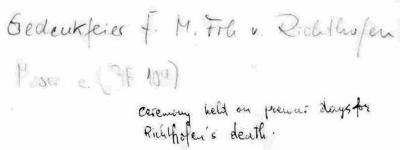 Gedenkfeier F. M. Frh v. Richthofen
ceremony held on previous days for
Richthofen's death.